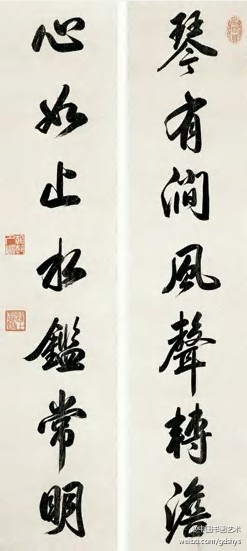 琴有澗風聲轉澹
心如止水鑑常明
中国书画艺术
weibo.com/gdshys